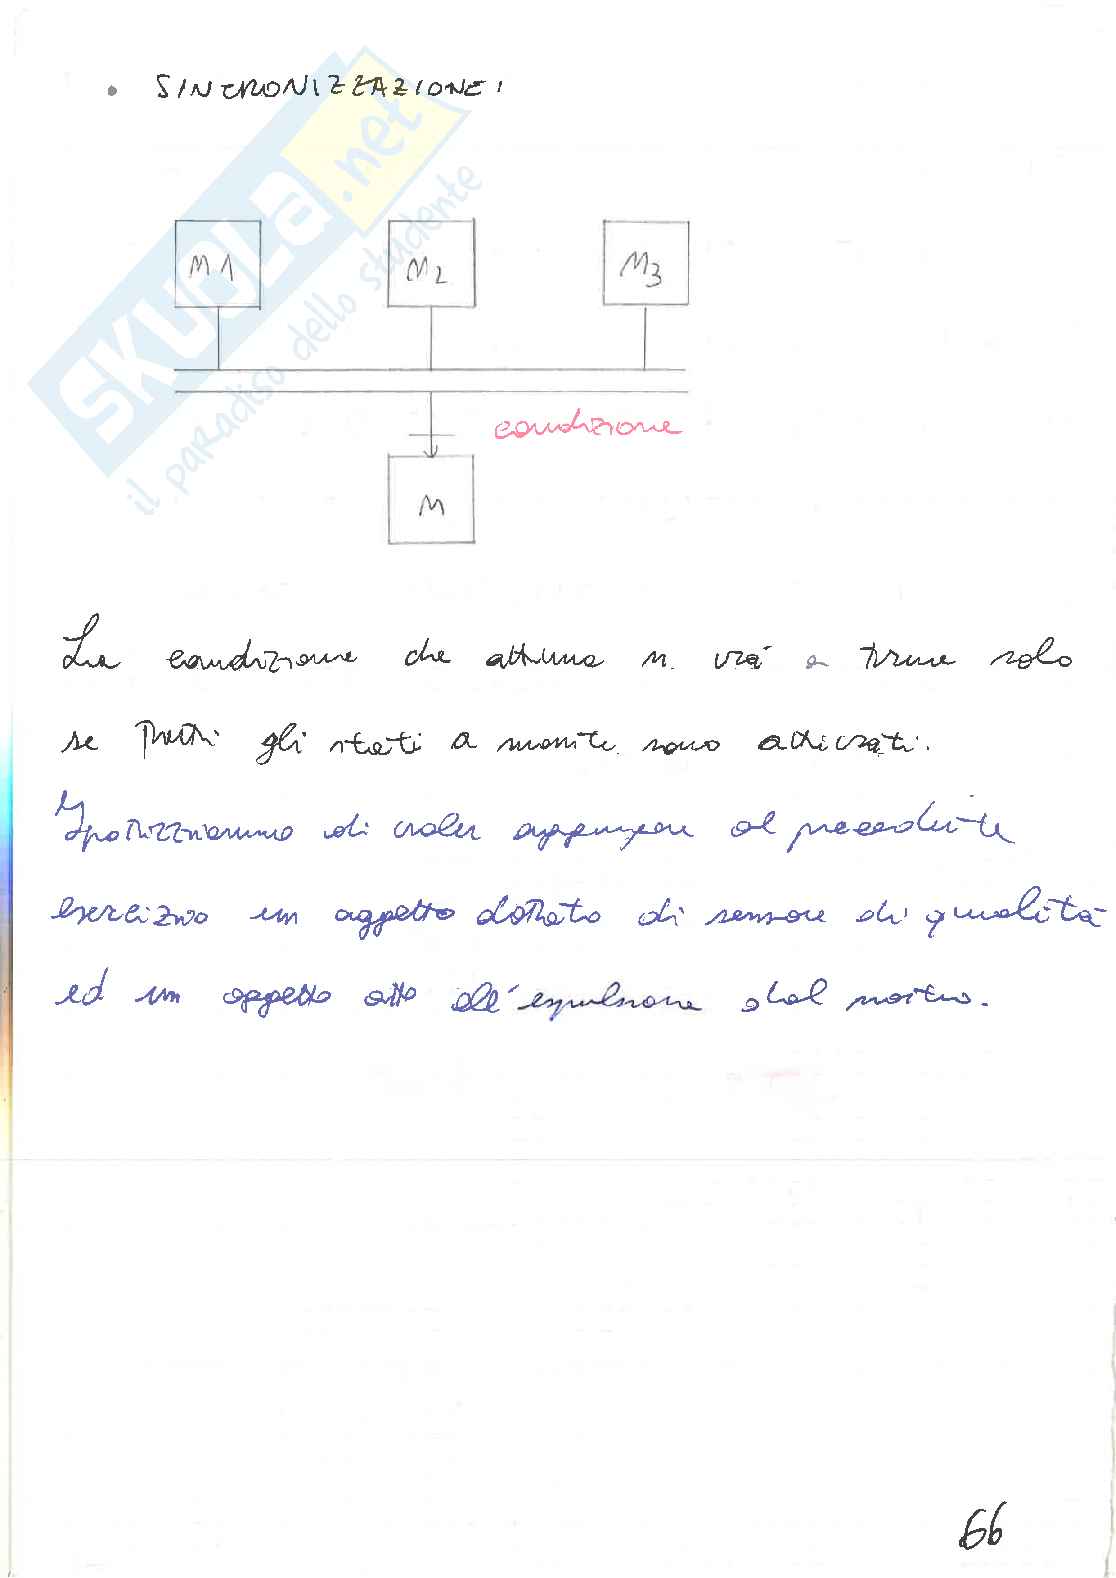 • SINCRONIZZAZIONE:
M1 M2 M3
condizione
M
La condizione che attiva n. va a true solo
se tutti gli stati a monte sono attivati.
Ipotizziamo di voler aggiungere al precedente
esercizio un oggetto dotato di sensore di qualità
ed un oggetto atto all'espulsione dal nastro.
66
SKUOLA.net
il paradiso dello studente